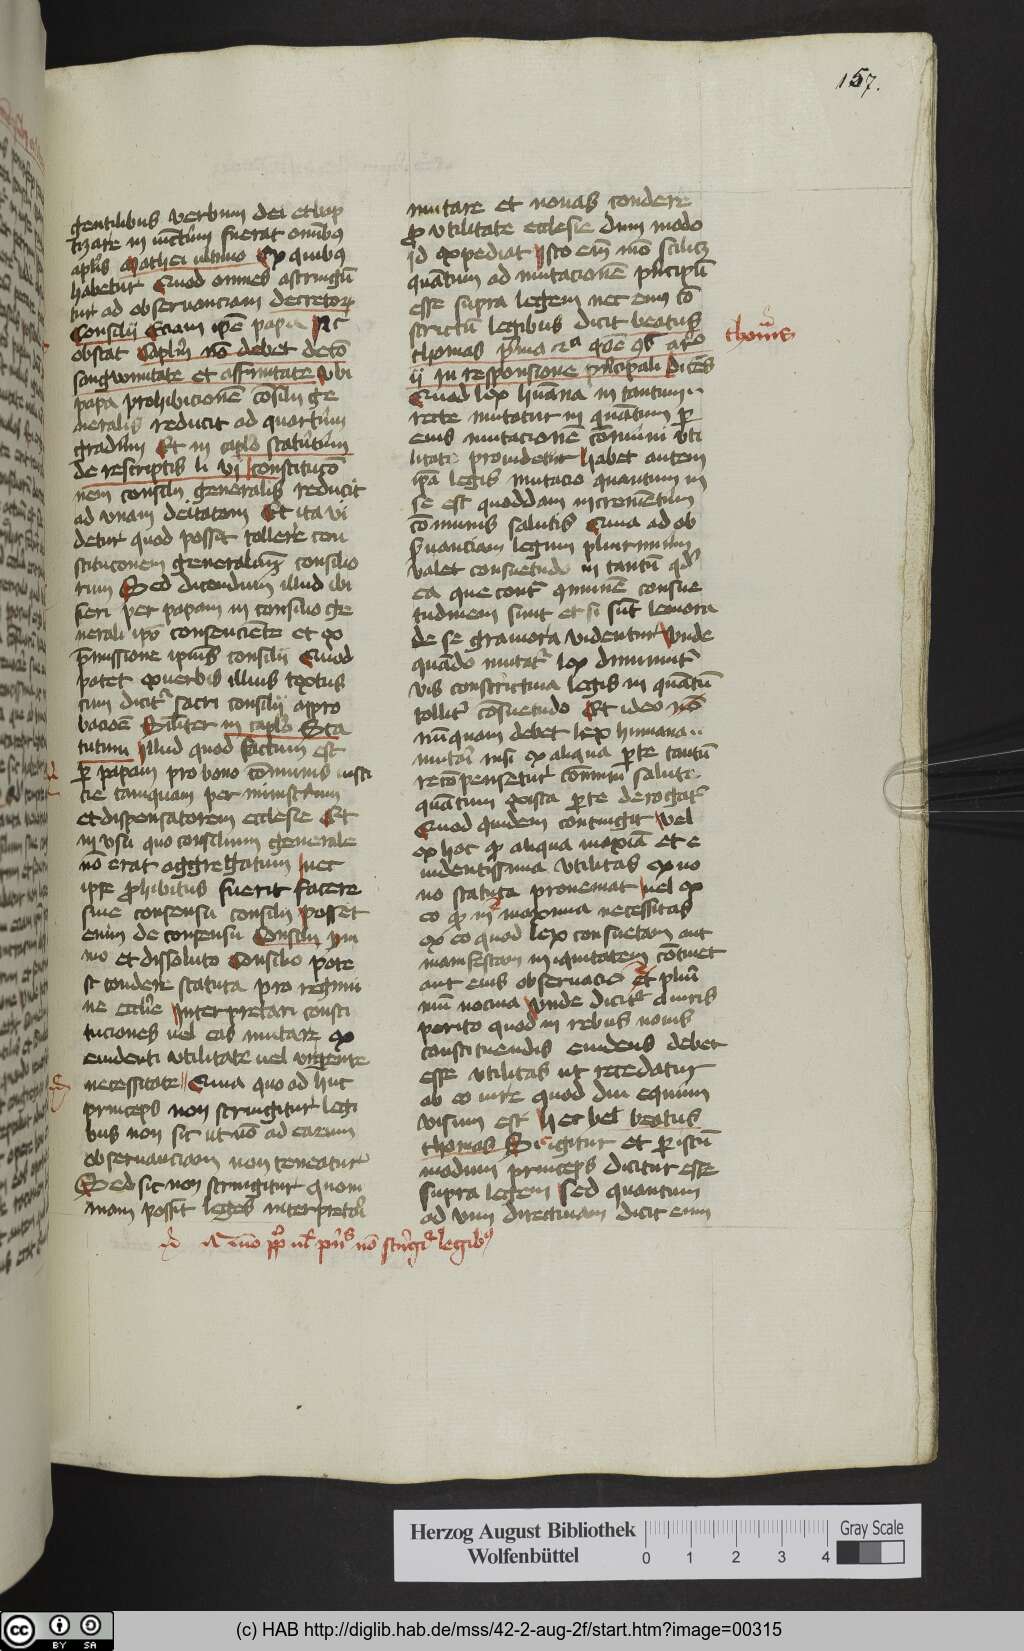 157.
gentilibus verbum dei et bap
tizare in iu͞ctim fuerat omībꝯ
ap̄lis Mathei ultimo Ex quibꝯ
habetur Quod omnes astringū
tur ad observanciam decretorꝝ
Consilij Eciam ip̄e papa Nec
obstat Capl̄m nō debet de cō
sangwinitate et affinitate vbi
papa prohibicionē cōsilij ge
neralis reducit ad quartum
gradum Et in caplō statutum
de rescriptis li vi constitucō
nem consilij generalis reducit
ad vnam deitatem Et ita vi
detur quod posset tollere con
stitucionem generaliū consilio
rum Sed dicendum illud ibi
fieri per papam in consilio ge
nerali ip̄o consenciēte et ex
p̄missione ipius consilij Quod
patet ex verbis illius textus
cum dicitr sacri consilij appro
bacioē Similiter in caplo Sta
tutum illud quod factum est
ꝑ papam pro bono cōmunis iusti
cie tamquam per ministrum
et dispensatorem ecclesie Et
in vsu quo consilium generale
nō erat aggregatum nec
ipse ꝓhibitus fuerit facere
sine consensu consilij posset
enim de consensu Consilij ym
mo et dissoluto Consilio pote
st condere statuta pro regimi
ne ecclīe interpretari consti
tuciones vel eas mutare ex
euidenti vtilitate vel vrgente
necessitate Quia quo ad huc
princeps non stringitur legi
bus non sic ut nō ad earum
observanciam non teneatur
Sed sic non stringitur quoni
mam possit leges interpretari
mutare et novas condere
ꝓ vtilitate ecclesie dum modo
id expediat Isto eni͞ mō scilicꝫ
quātum ad mutacionē pn̄cipū
esse supra legem nec eius cō
strictū legibus dicit beatus
thomas p̄ma 2ᵃ qōe 95 arᵒ
ij in responsione principali Dicēs
Quod lex hūana in tantum
recte mutatur in quātum ꝑ
eius mutacionē cōmuni vti
litate prouidetur habet autem
ip̄a legis mutacio quantum in
se est quoddam incremētum
cōmunis salutis Quia ad ob
ẜuanciam legum plurimum
valet consuetudo in tantū qd
ea que contᵃ cōmunē consue
tudinem fiunt et si sūt leuiora
de se grauiora videntur vnde
quādo mutatr lex diminuitr
vis constrictiua legis in quātū
tollitr cōsuetudo Et ideo nō
nūquam debet lex humana
mutari nisi ex aliqua ꝑte tantū
recōpensetur cōmuni saluti
quātum ex ista ꝑte derogatr
Quod quidem contingit vel
ex hoc ꝙ aliqua maxīa et e
uidentissima vtilitas ex no
no statuta proueniat vel ex
eo ꝙ in maxima necessitas
ex eo quod lex consuetam aut
manifestam iniquitatem cōtinet
aut eius obseruacio est pluri
mū nociua vnde dicitr a iuris
perito quod in rebus nouis
constituendis euidens debet
esse vtilitas ut recedatur
ab eo iure quod diu equum
visum est hec beatus
thomas Sic igitur et ꝑ istū
modum princeps dicitur esse
supra legem sed quantum
ad vim directiuam dicit enim
thomas
nō stringitr legibꝯ
Herzog August Bibliothek
Wolfenbüttel
0 1 2 3 4
Gray Scale
cc BY SA
(c) HAB http://diglib.hab.de/mss/42-2-aug-2f/start.htm?image=00315